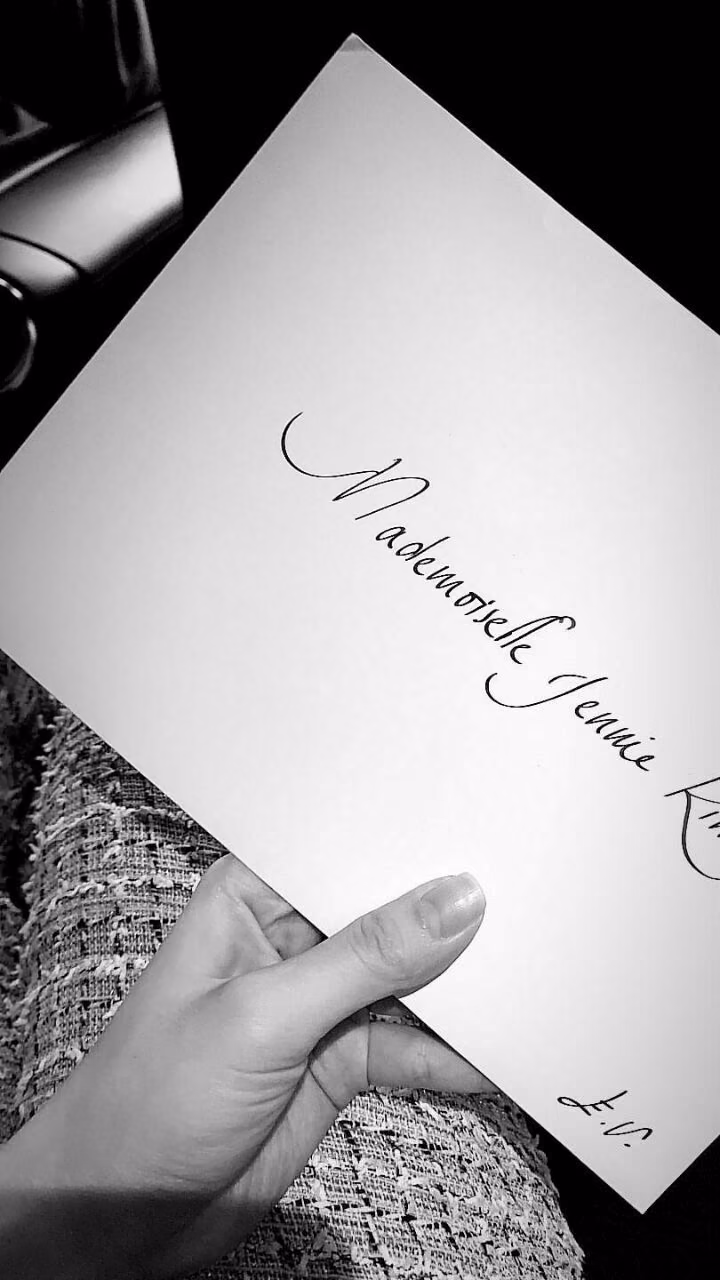 Mademoiselle Jennie Kim
E.V.